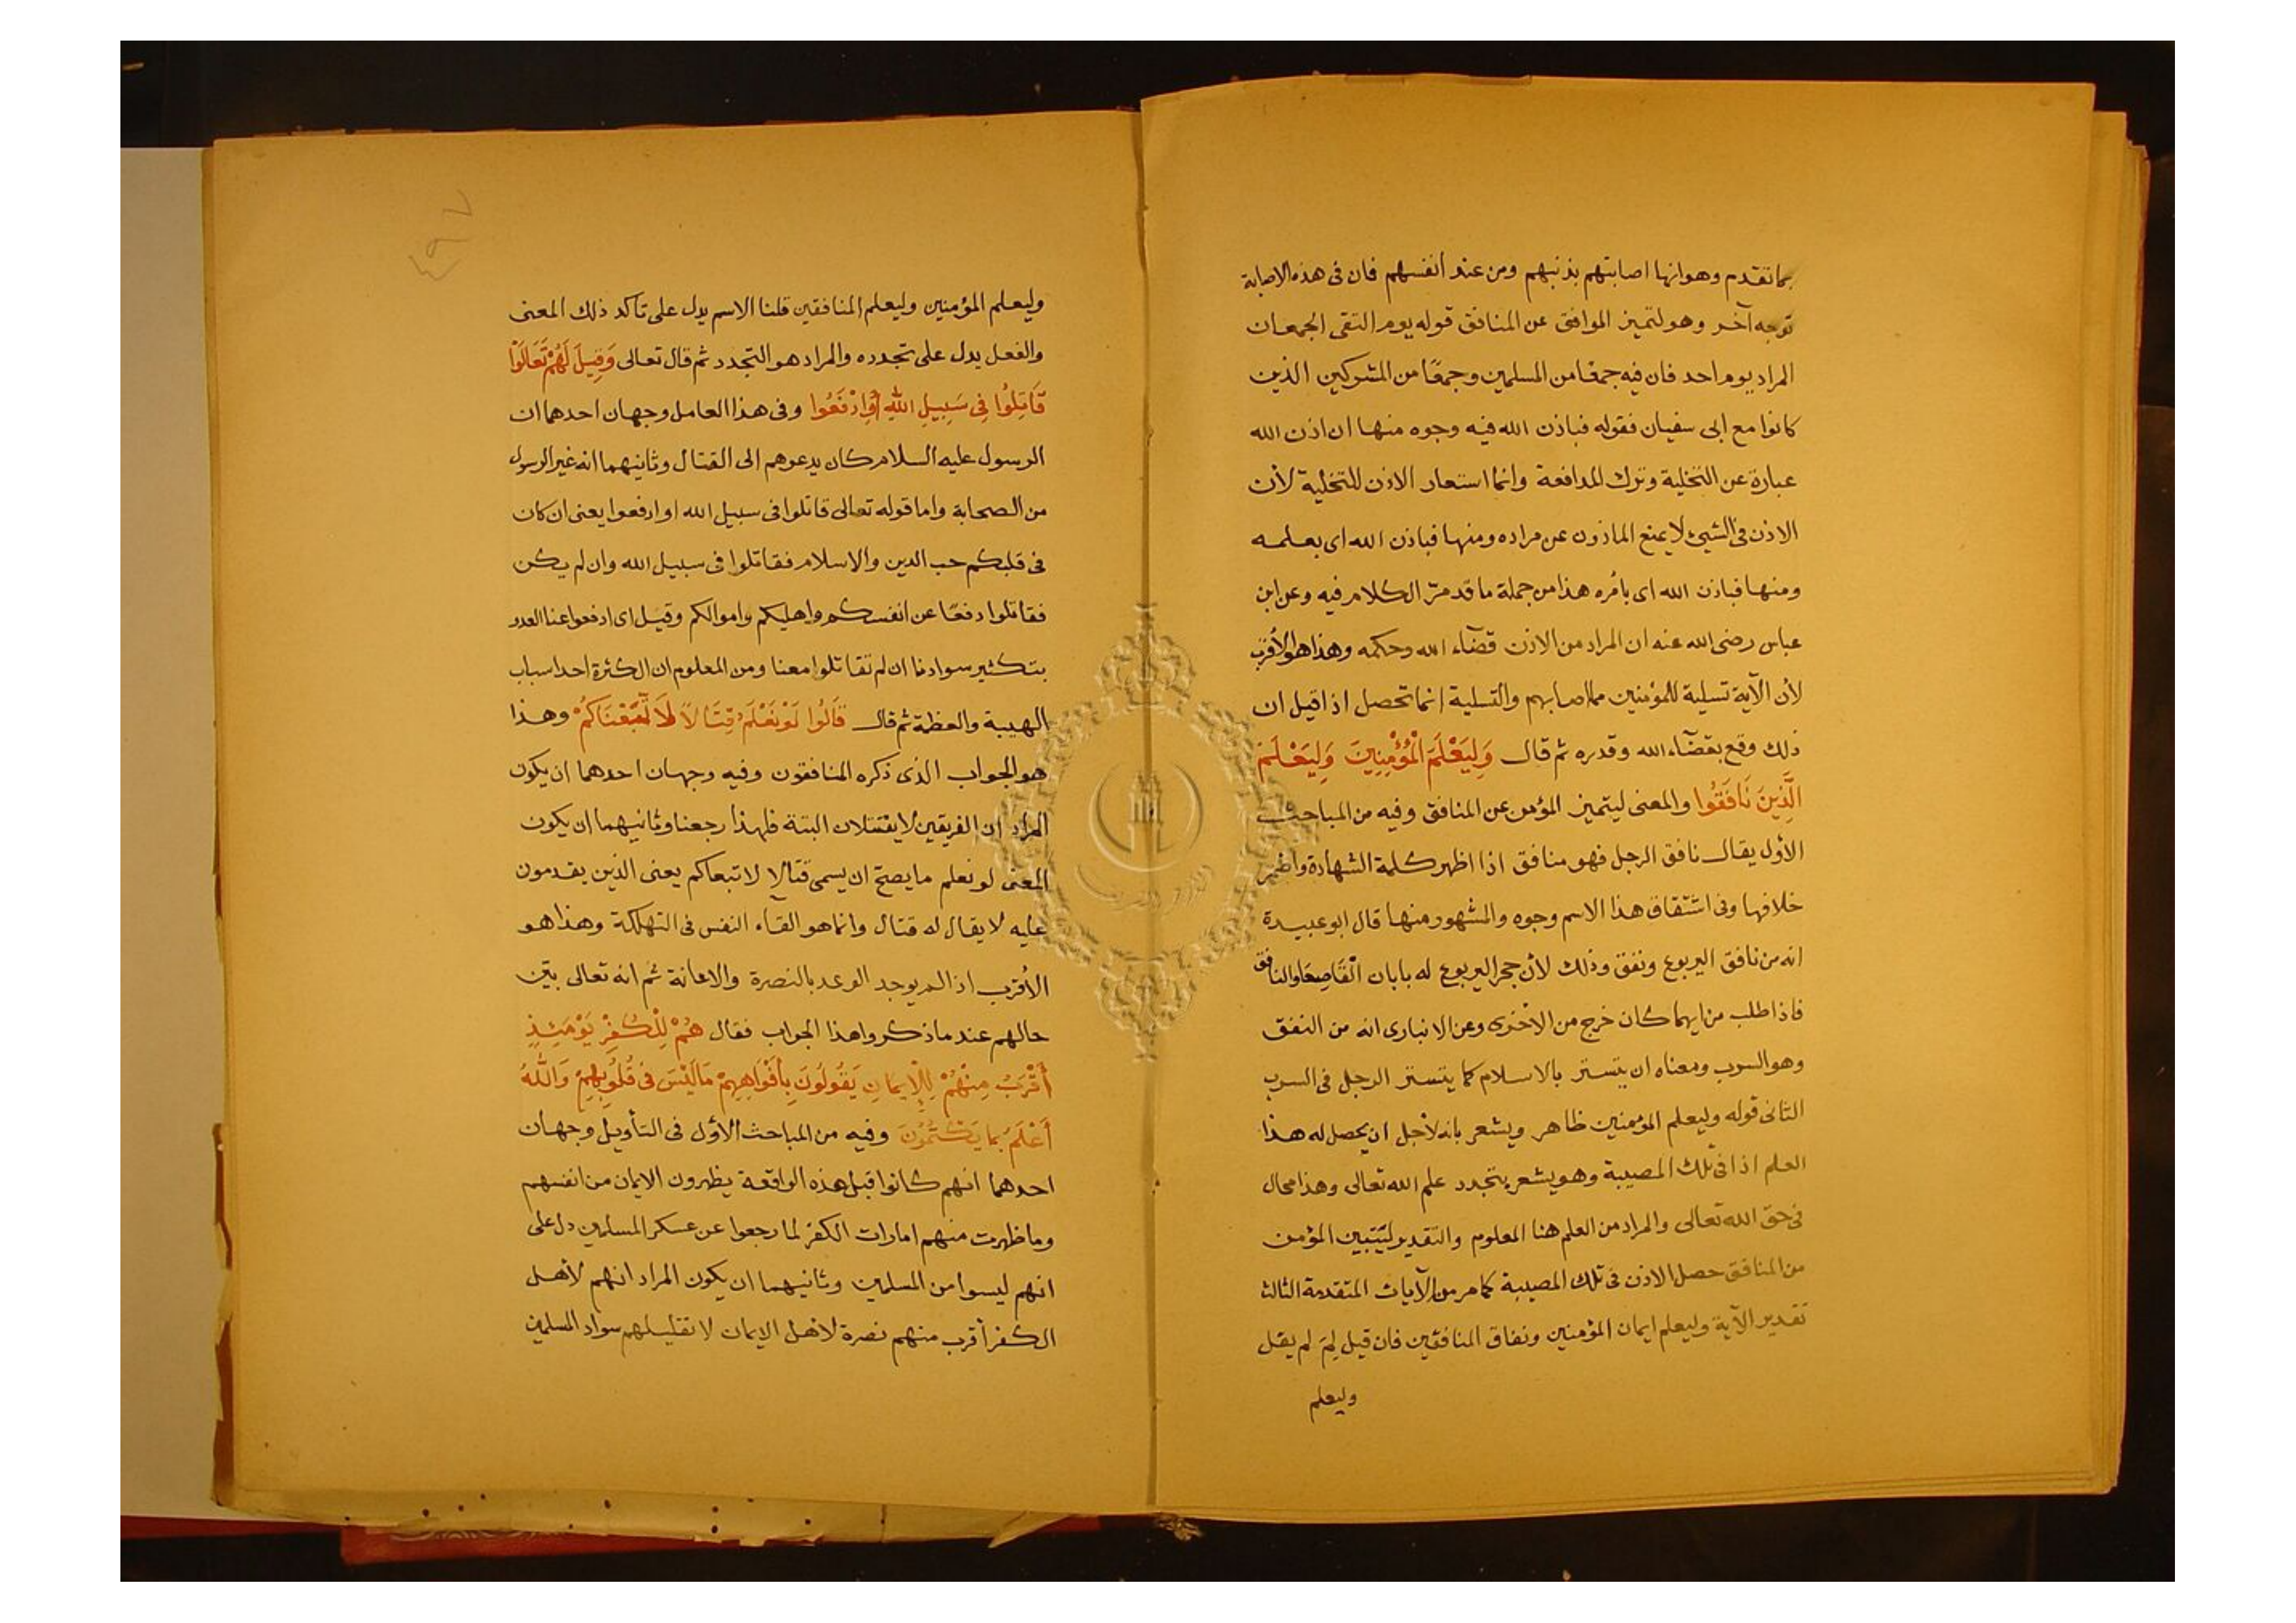 بما تقدم وهو انها اصابتهم بذنبهم ومن عند أنفسهم فان فى هذه الاصابة
توجه آخر وهو لتميز الموافق عن المنافق قوله يوم التقى الجمعان
المراد يوم احد فان فيه جمعًا من المسلمين وجمعًا من المشركين الذين
كانوا مع ابى سفيان فقوله فباذن الله فيه وجوه منها ان اذن الله
عبارة عن التخلية وترك المدافعة وانما استعار الاذن للتخلية لأن
الاذن فى الشيئ لا يمنع الماذون عن مراده ومنها فباذن الله اى بعلمه
ومنها فباذن الله اى بأمره هذا من جملة ما قد مرّ الكلام فيه وعن ابن
عباس رضى الله عنه ان المراد من الاذن قضآء الله وحكمه وهذا هو الأقرب
لأن الآية تسلية للمؤمنين مما اصابهم والتسلية انما تحصل اذا قيل ان
ذلك وقع بقضآء الله وقدره ثم قال وَلِيَعْلَمَ الْمُؤْمِنِينَ وَلِيَعْلَمَ
الَّذِينَ نَافَقُوا والمعنى ليتميز المؤمن عن المنافق وفيه من المباحث
الأول يقال نافق الرجل فهو منافق اذا اظهر كلمة الشهادة واضمر
خلافها وفى اشتقاق هذا الاسم وجوه والمشهور منها قال ابو عبيدة
انه من نافق اليربوع ونفق وذلك لأن جحر اليربوع له بابان الْقَاصِعَا والنافق
فاذا طلب من ايهما كان خرج من الأخرى وعن الانبارى انه من النفق
وهو السرب ومعناه ان يتستر بالاسلام كما يتستر الرجل فى السرب
الثانى قوله وليعلم المؤمنين ظاهر ويشعر بانه لأجل ان يحصل له هذا
العلم اذا فى تلك المصيبة وهو يشعر بتجدد علم الله تعالى وهذا محال
فى حق الله تعالى والمراد من العلم هنا المعلوم والتقدير ليتبين المؤمن
من المنافق حصل الاذن فى تلك المصيبة كما مر من الآيات المتقدمة الثالث
تقدير الآية وليعلم ايمان المؤمنين ونفاق المنافقين فان قيل لِمَ لم يقل
وليعلم
٤٩٧
وليعلم المؤمنين وليعلم المنافقين قلنا الاسم يدل على تاكد ذلك المعنى
والفعل يدل على تجدده والمراد هو التجدد ثم قال تعالى وَقِيلَ لَهُمْ تَعَالَوْا
قَاتِلُوا فِى سَبِيلِ اللهِ أَوِ ادْفَعُوا وفى هذا العامل وجهان احدهما ان
الرسول عليه السلام كان يدعوهم الى القتال وثانيهما انه غير الرسول
من الصحابة واما قوله تعالى قاتلوا فى سبيل الله او ادفعوا يعنى ان كان
فى قلبكم حب الدين والاسلام فقاتلوا فى سبيل الله وان لم يكن
فقاتلوا دفعًا عن انفسكم واهليكم واموالكم وقيل اى ادفعوا عنا العدو
بتكثير سوادنا ان لم تقاتلوا معنا ومن المعلوم ان الكثرة احد اسباب
الهيبة والعظمة ثم قال قَالُوا لَوْ نَعْلَمُ قِتَالاً لَاتَّبَعْنَاكُمْ وهذا
هو الجواب الذى ذكره المنافقون وفيه وجهان احدهما ان يكون
المراد ان الفريقين لا يقتتلان البتة فلهذا رجعنا وثانيهما ان يكون
المعنى لو نعلم ما يصح ان يسمى قتالا لاتبعاكم يعنى الذين يقدمون
عليه لا يقال له قتال وانما هو القآء النفس فى التهلكة وهذا هو
الأقرب اذ الم يوجد الوعد بالنصرة والاعانة ثم انه تعالى بيّن
حالهم عند ما ذكروا هذا الجواب فقال هُمْ لِلْكُفْرِ يَوْمَئِذٍ
أَقْرَبُ مِنْهُمْ لِلْإِيمَانِ يَقُولُونَ بِأَفْوَاهِهِمْ مَا لَيْسَ فِى قُلُوبِهِمْ وَاللهُ
أَعْلَمُ بِمَا يَكْتُمُونَ وفيه من المباحث الأول فى التأويل وجهان
احدهما انهم كانوا قبل هذه الواقعة يظهرون الايمان من انفسهم
وما ظهرت منهم امارات الكفر لما رجعوا عن عسكر المسلمين دل على
انهم ليسوا من المسلمين وثانيهما ان يكون المراد انهم لأهل
الكفر أقرب منهم نصرة لاهل الايمان لا تقليلهم سواد المسلمين